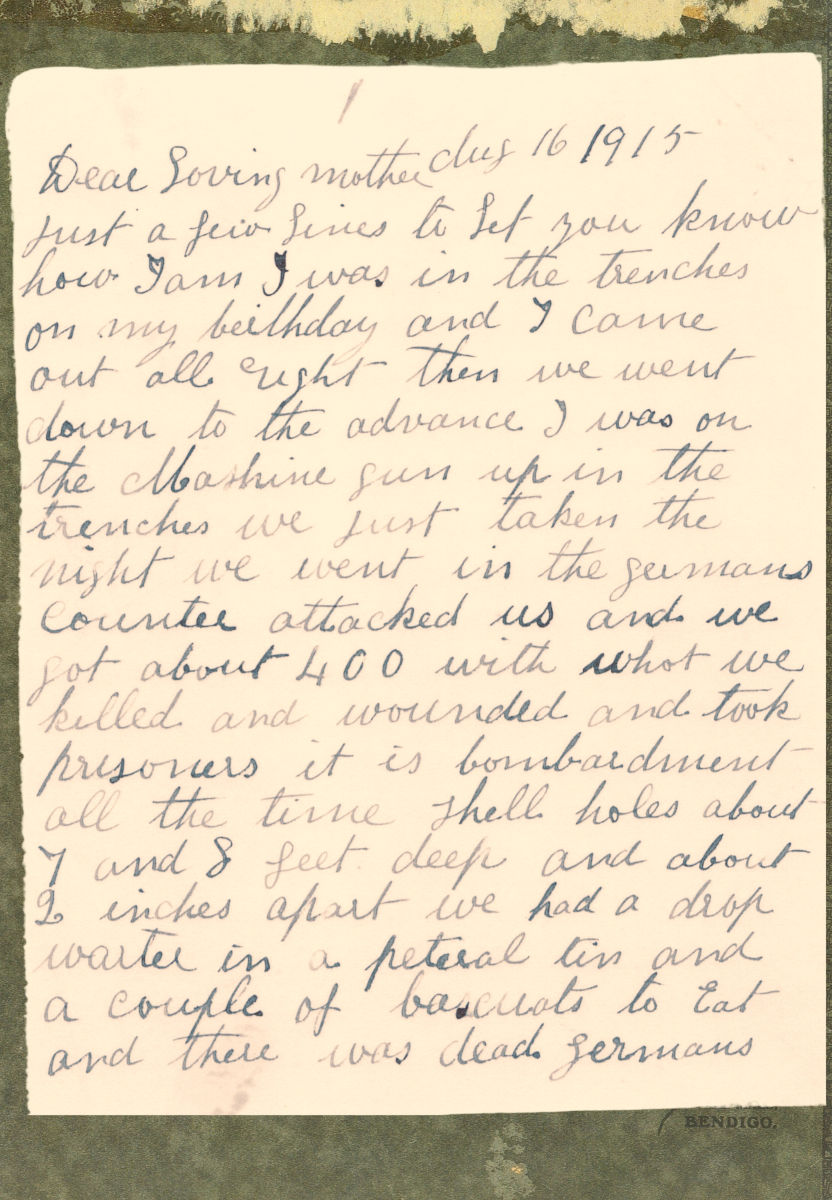 Aug 16 1915
Dear Loving mother
just a few lines to let you know
how I am I was in the trenches
on my beirthday and I came
out all right then we went
down to the advance I was on
the Mashine gun up in the
trenches we just taken the
night we went in the germans
Counter attacked us and we
got about 400 with what we
killed and wounded and took
prisoners it is bombardment
all the time shell holes about
7 and 8 feet deep and about
2 inches apart we had a drop
warter in a peteral tin and
a couple of bascuats to Eat
and there was dead germans
BENDIGO.